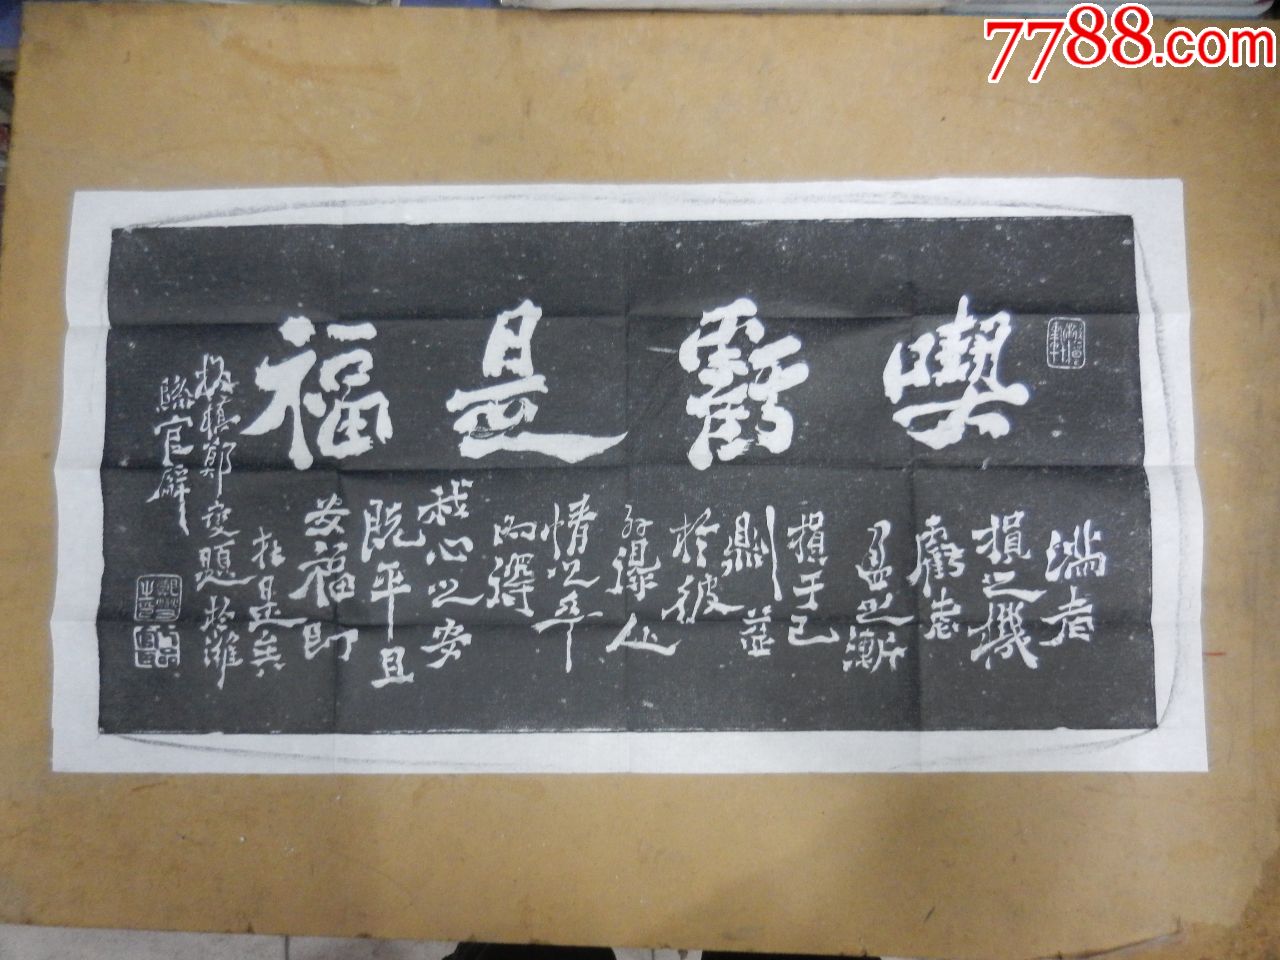 7788.com
喫虧是福
滿者
損之機
虧者
盈之漸
損于己
則益
於彼
外得人
情之平
內得
我心之安
既平且
安福即
在是矣
板橋鄭燮題於濰
縣官廨